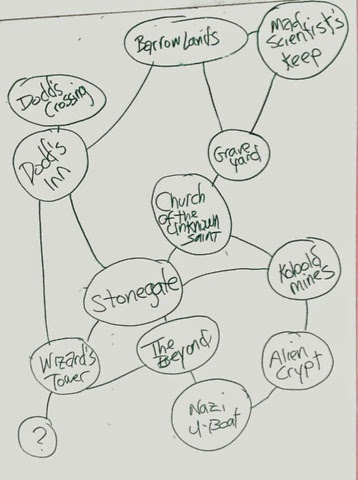 Barrowlands
Mad
Scientist's
Keep
Dodd's
Crossing
Dodd's
Inn
Grave
yard
Church
of the
Unknown
Saint
Kobold
mines
Stonegate
The
Beyond
Wizard's
Tower
Alien
Crypt
Nazi
U-Boat
?